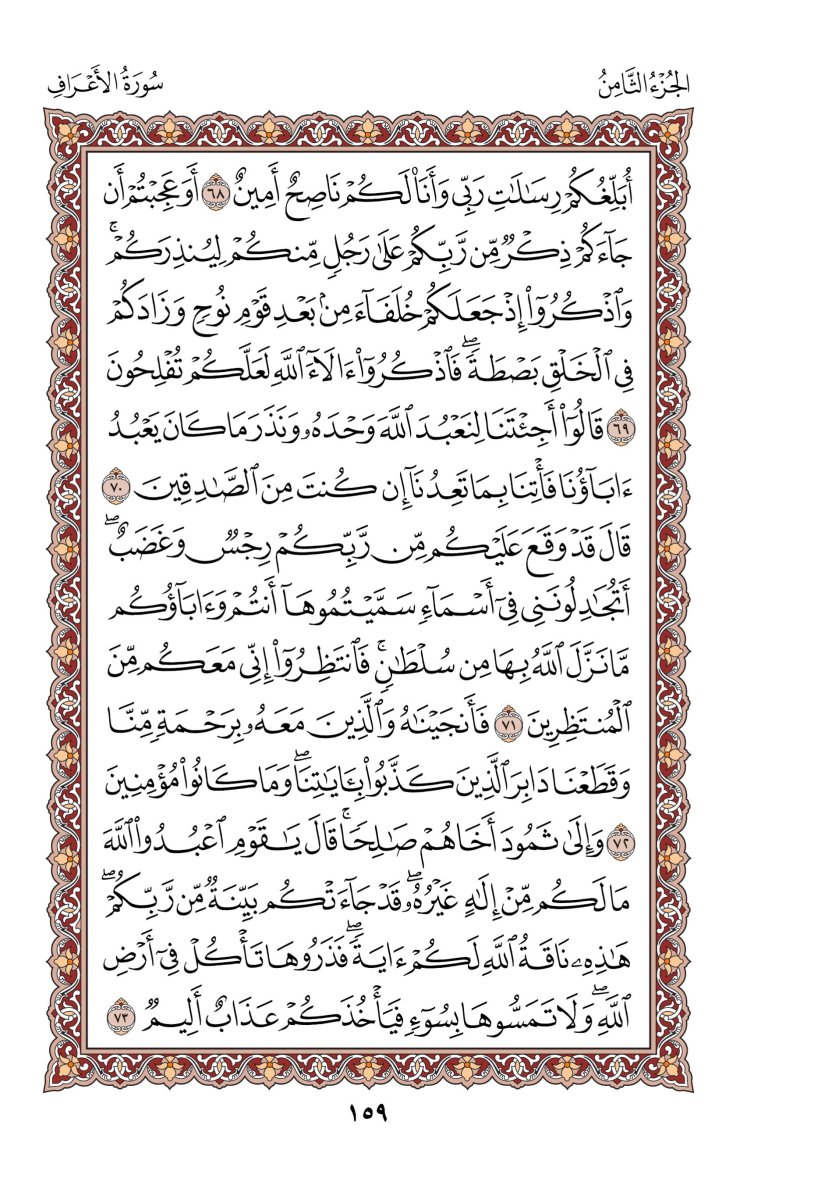 الجُزْءُ الثَّامِنُ
سُورَةُ الأَعْرَافِ
أُبَلِّغُكُمْ رِسَالَاتِ رَبِّي وَأَنَا۠ لَكُمْ نَاصِحٌ أَمِينٌ ٦٨ أَوَعَجِبْتُمْ أَن
جَآءَكُمْ ذِكْرٌ مِّن رَّبِّكُمْ عَلَىٰ رَجُلٍ مِّنكُمْ لِيُنذِرَكُمْۚ
وَٱذْكُرُوٓا۟ إِذْ جَعَلَكُمْ خُلَفَآءَ مِنۢ بَعْدِ قَوْمِ نُوحٍ وَزَادَكُمْ
فِي ٱلْخَلْقِ بَصْۜطَةًۖ فَٱذْكُرُوٓا۟ ءَالَآءَ ٱللَّهِ لَعَلَّكُمْ تُفْلِحُونَ
٦٩ قَالُوٓا۟ أَجِئْتَنَا لِنَعْبُدَ ٱللَّهَ وَحْدَهُۥ وَنَذَرَ مَا كَانَ يَعْبُدُ
ءَابَآؤُنَا فَأْتِنَا بِمَا تَعِدُنَآ إِن كُنتَ مِنَ ٱلصَّٰدِقِينَ ٧٠
قَالَ قَدْ وَقَعَ عَلَيْكُم مِّن رَّبِّكُمْ رِجْسٌ وَغَضَبٌۖ
أَتُجَٰدِلُونَنِي فِيٓ أَسْمَآءٍ سَمَّيْتُمُوهَآ أَنتُمْ وَءَابَآؤُكُم
مَّا نَزَّلَ ٱللَّهُ بِهَا مِن سُلْطَٰنٍۚ فَٱنتَظِرُوٓا۟ إِنِّي مَعَكُم مِّنَ
ٱلْمُنتَظِرِينَ ٧١ فَأَنجَيْنَٰهُ وَٱلَّذِينَ مَعَهُۥ بِرَحْمَةٍ مِّنَّا
وَقَطَعْنَا دَابِرَ ٱلَّذِينَ كَذَّبُوا۟ بِـَٔايَٰتِنَاۖ وَمَا كَانُوا۟ مُؤْمِنِينَ
٧٢ وَإِلَىٰ ثَمُودَ أَخَاهُمْ صَٰلِحًاۚ قَالَ يَٰقَوْمِ ٱعْبُدُوا۟ ٱللَّهَ
مَا لَكُم مِّنْ إِلَٰهٍ غَيْرُهُۥۖ قَدْ جَآءَتْكُم بَيِّنَةٌ مِّن رَّبِّكُمْۖ
هَٰذِهِۦ نَاقَةُ ٱللَّهِ لَكُمْ ءَايَةًۖ فَذَرُوهَا تَأْكُلْ فِيٓ أَرْضِ
ٱللَّهِۖ وَلَا تَمَسُّوهَا بِسُوٓءٍ فَيَأْخُذَكُمْ عَذَابٌ أَلِيمٌ ٧٣
١٥٩